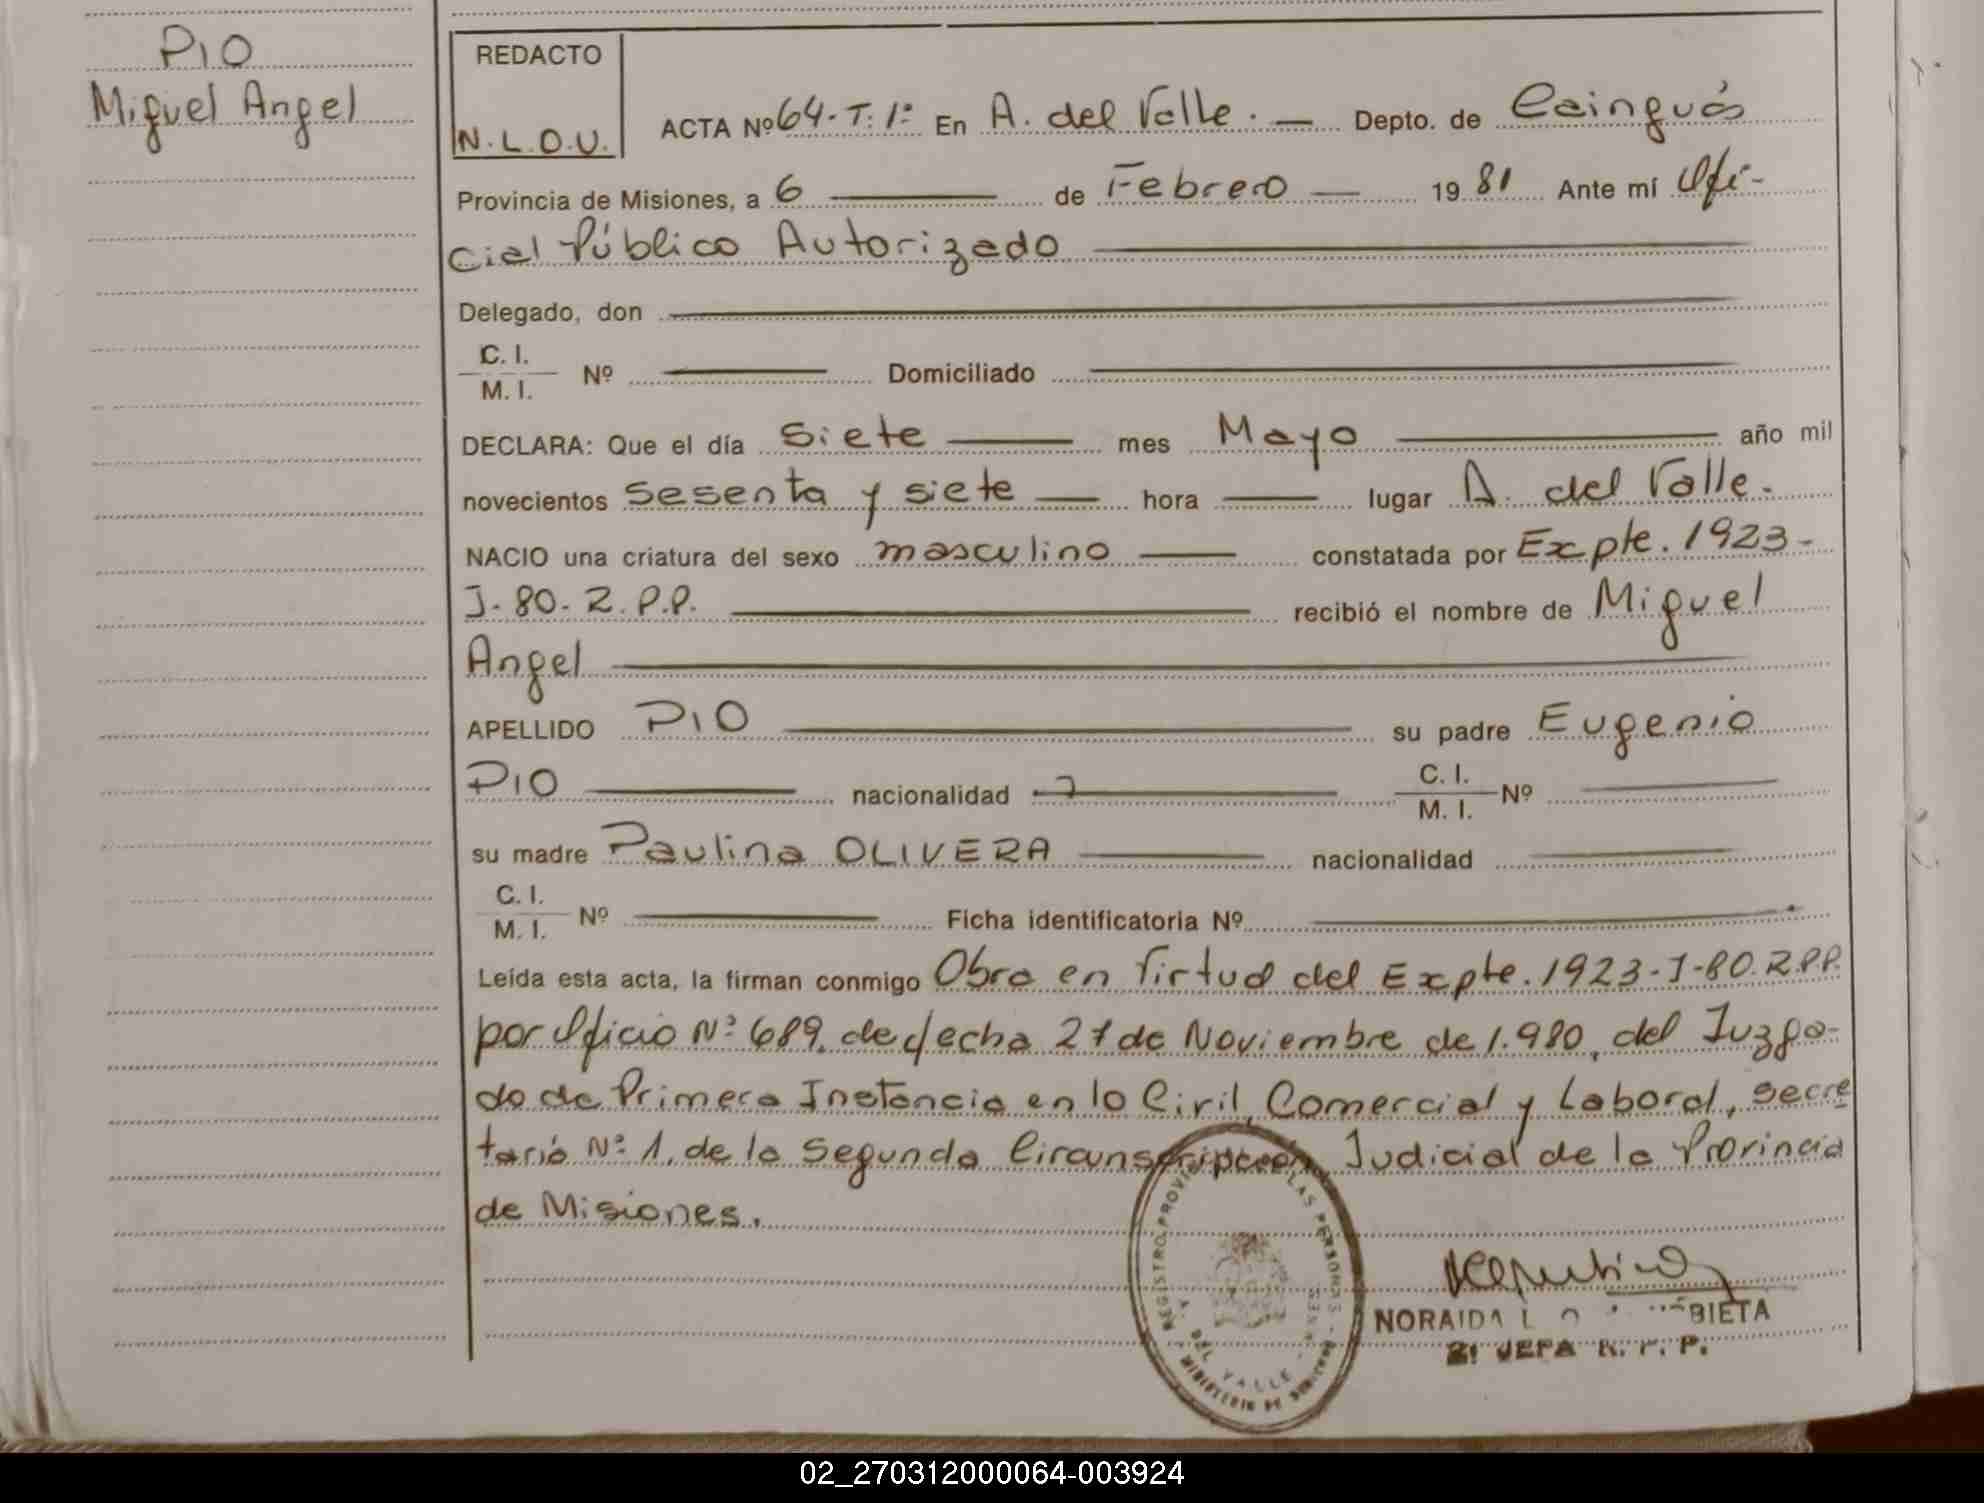 PIO
Miguel Angel
REDACTO
N.L.O.U.
ACTA Nº 64-T.1º En A. del Valle. — Depto. de Cainguás
Provincia de Misiones, a 6 de Febrero — 1981 Ante mí Ofi-
cial Público Autorizado
Delegado, don
C. I.
M. I. Nº Domiciliado
DECLARA: Que el día siete mes Mayo año mil
novecientos sesenta y siete hora lugar A. del Valle.
NACIO una criatura del sexo masculino constatada por Expte. 1923-
J-80-R.P.P. recibió el nombre de Miguel
Angel
APELLIDO PIO su padre Eugenio
PIO nacionalidad C. I.
M. I. Nº
su madre Paulina OLIVERA nacionalidad
C. I.
M. I. Nº Ficha identificatoria Nº
Leída esta acta, la firman conmigo Obra en virtud del Expte. 1923-J-80.R.P.P.
por Oficio Nº 689, de fecha 27 de Noviembre de 1.980, del Juzga-
do de Primera Instancia en lo Civil, Comercial y Laboral, secre
taria Nº 1, de la Segunda Circunscripción Judicial de la Provincia
de Misiones.
REGISTRO PROVI LAS PERSONAS
A. DEL VALLE
MINISTERIO DE
NORAIDA BIETA
2ª JEFA R. P. P.
02_270312000064-003924